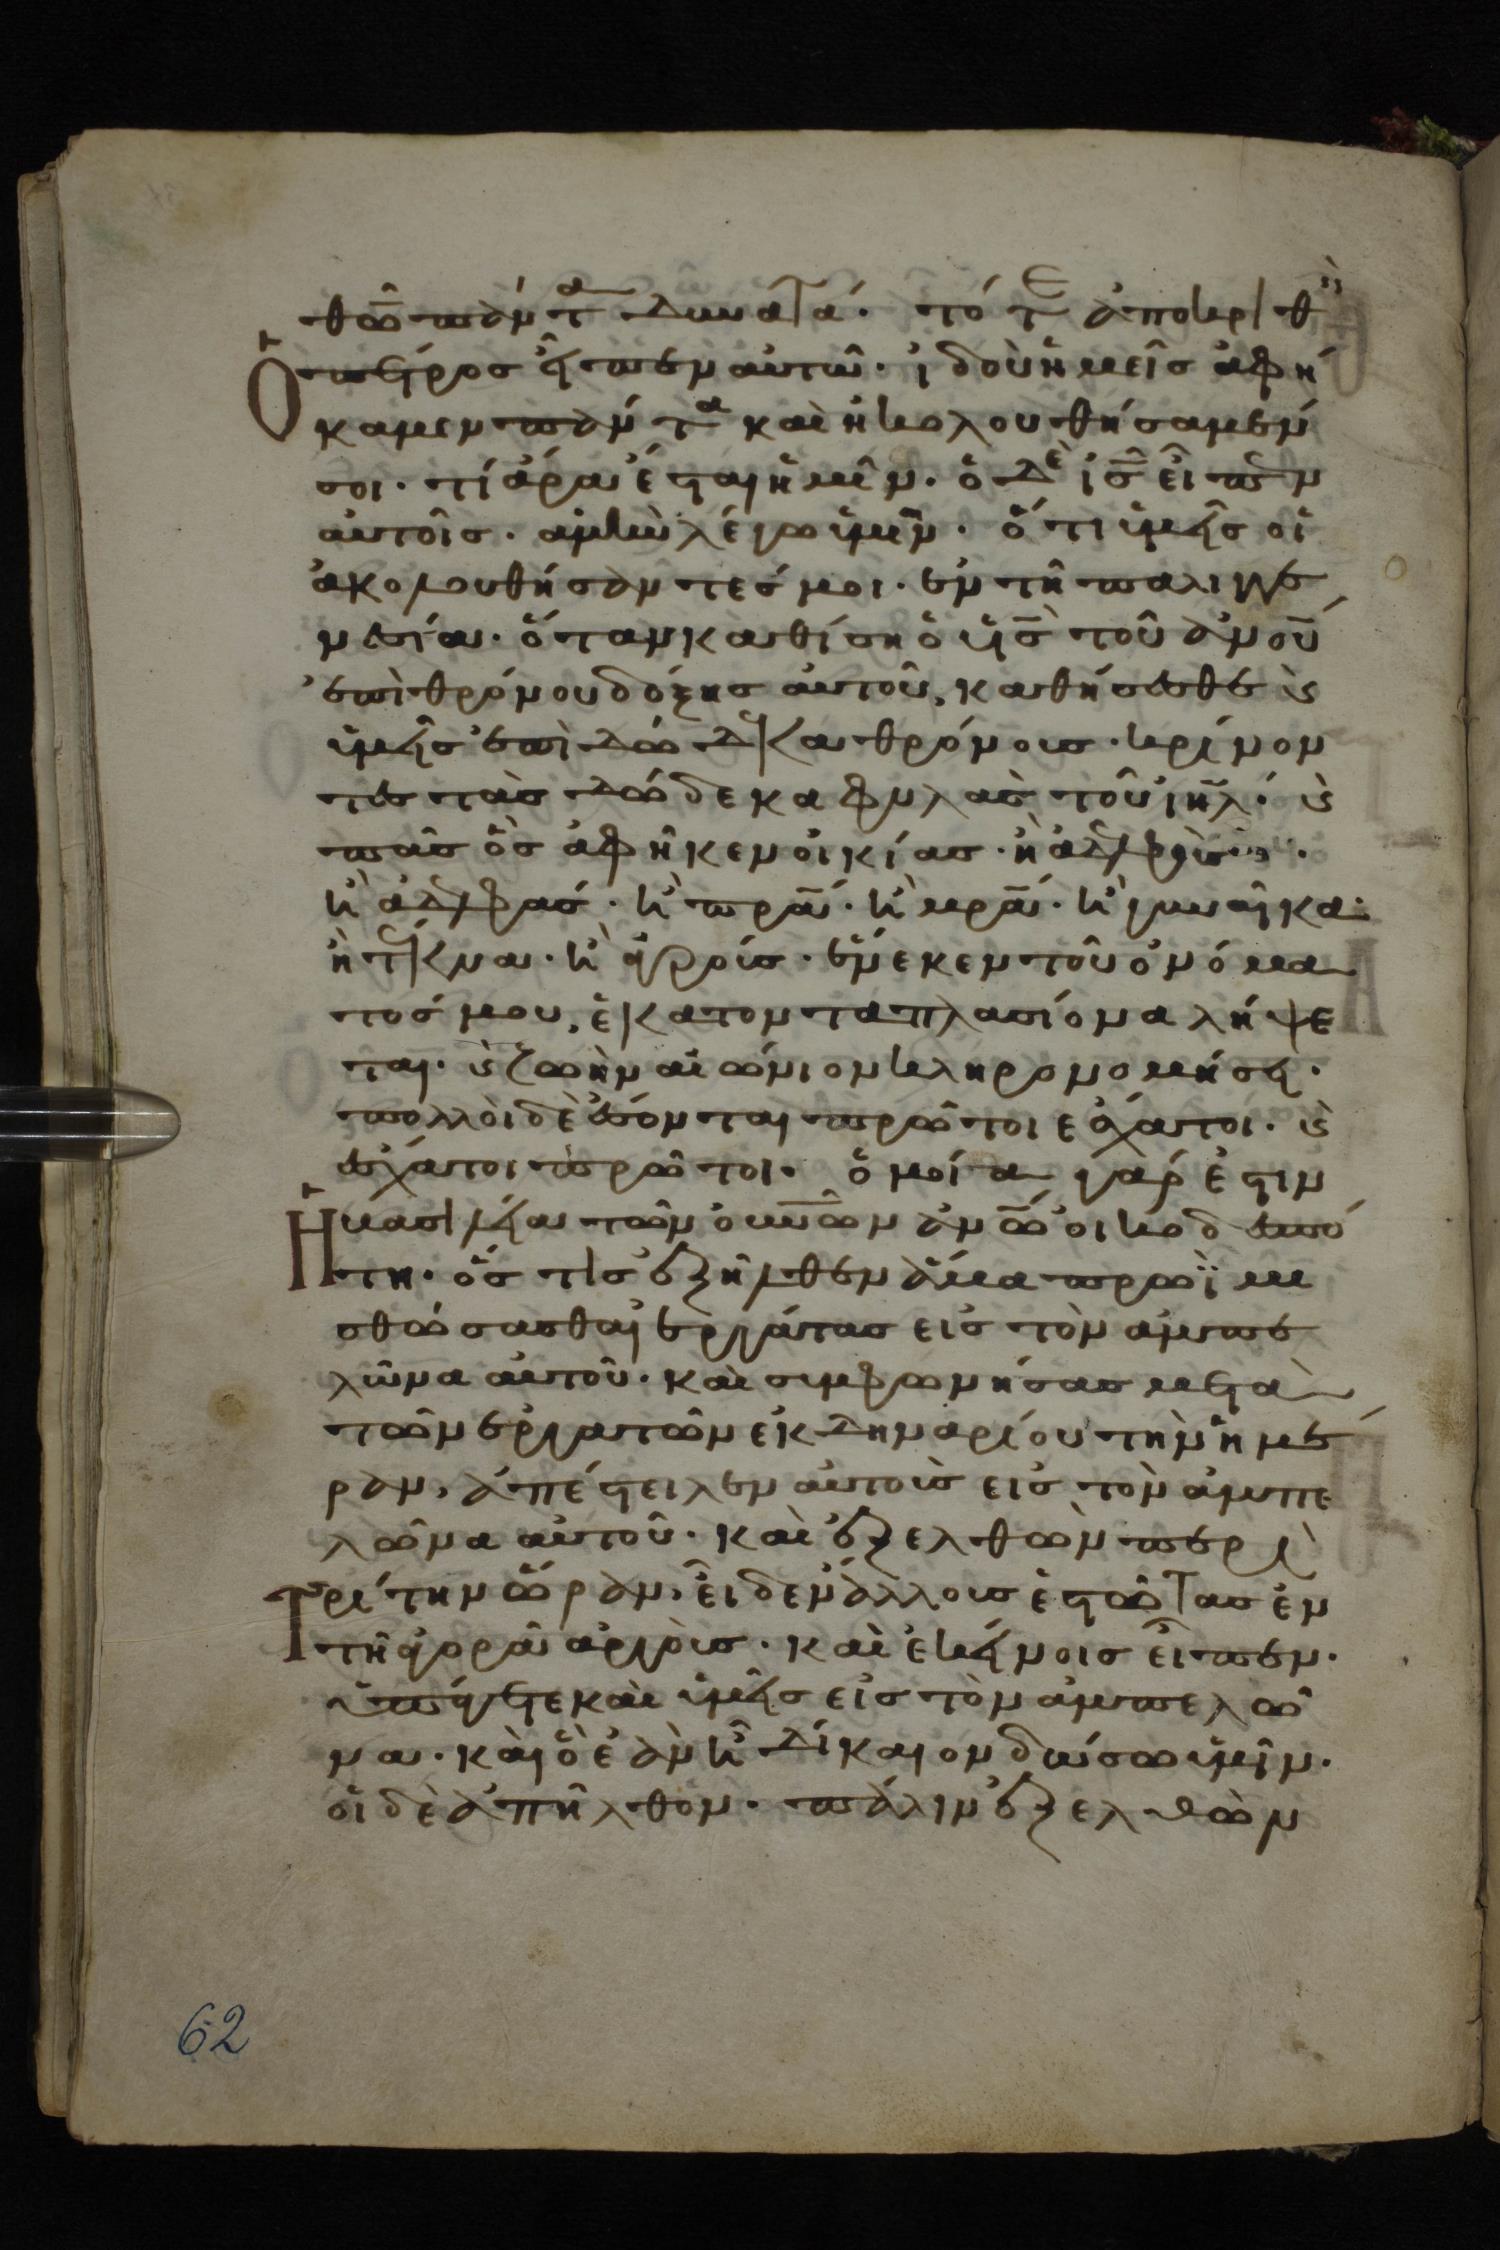 θω̅ πάντα δυνατά· τότε ἀποκριθεὶς
ὁ πέτρος εἶπεν αὐτῶ· ἰδοὺ ἡμεῖς ἀφή
καμεν πάντα καὶ ἠκολουθήσαμέν
σοι· τί ἄρα ἔσται ἡμῖν· ὁ δὲ ι̅ς̅ εἶπεν
αὐτοῖς· ἀμὴν λέγω ὑμῖν· ὅτι ὑμεῖς οἱ
ἀκολουθήσαντές μοι· ἐν τῆ παλιγγε
νεσία· ὅταν καθίση ὁ υ̅ς̅ τοῦ ἀν̅ου̅
ἐπὶ θρόνου δόξης αὐτοῦ, καθήσεσθε ϗ
ὑμεῖς ἐπὶ δώδεκα θρόνους· κρίνον
τες τὰς δώδεκα φυλὰς τοῦ ιη̅λ· ϗ
πᾶς ὃς ἀφῆκεν οἰκίας· ἢ ἀδελφοὺς·
ἢ ἀδελφάς· ἢ πρα̅· ἢ μρα̅· ἢ γυναῖκα·
ἢ τέκνα· ἢ ἀγρούς· ἕνεκεν τοῦ ὀνόμα
τός μου, ἑκατονταπλασίονα λήψε
ται· ϗ ζωὴν αἰώνιον κληρονομήσει·
πολλοὶ δὲ ἔσονται πρῶτοι ἔσχατοι· ϗ
ἔσχατοι πρῶτοι· ὁμοία γάρ ἐστιν
Ἡ βασιλεία τῶν οὐν̅ων ἀν̅ω̅ οἰκοδεσπό
τη· ὅστις ἐξῆλθεν ἅμα πρωῒ μι
σθώσασθαι ἐργάτας εἰς τὸν ἀμπε
λῶνα αὐτοῦ· καὶ συμφωνήσας μετὰ
τῶν ἐργατῶν ἐκ δηναρίου τὴν ἡμέ
ραν, ἀπέστειλεν αὐτοὺς εἰς τὸν ἀμπε
λῶνα αὐτοῦ· καὶ ἐξελθὼν περὶ
Τρίτην ὥραν, εἶδεν ἄλλους ἑστῶτας ἐν
τῆ ἀγορᾶ ἀργοὺς· καὶ ἐκείνοις εἶπεν·
ὑπάγετε καὶ ὑμεῖς εἰς τὸν ἀμπελῶ
να· καὶ ὃ ἐὰν ἦ δίκαιον δώσω ὑμῖν·
οἱ δὲ ἀπῆλθον· πάλιν ἐξελθὼν
62